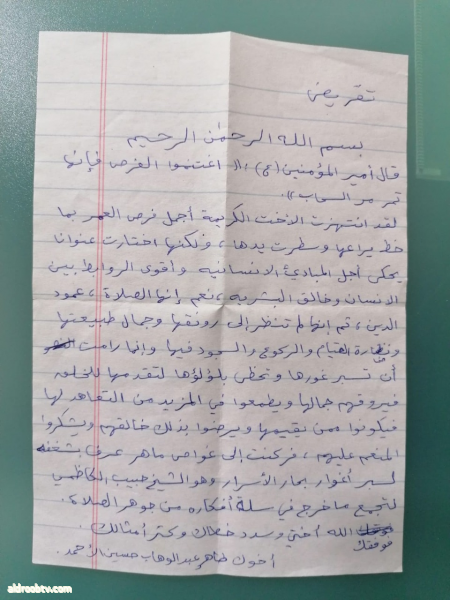 تقريض
بسم الله الرحمن الرحيم
قال أمير المؤمنين (ع): (( اغتنموا الفرص فإنها
تمر مر السحاب )).
لقد انتهزت الأخت الكريمة أجمل فرص العمر بما
خط يراعها وسطرت يدها، ولكنها اختارت عنوانا
يحكي أجل المبادئ الإنسانية وأقوى الروابط بين
الإنسان وخالق البشرية، نعم إنها الصلاة، عمود
الدين، ثم إنها لم تنظر إلى رونقها وجمال طبيعتها
ونظارة القيام والركوع والسجود فيها وإنما رامت
أن تسبر غورها وتحظى بلؤلؤها لتقدمها للخلق
فيروقهم جمالها ويطمعوا في المزيد من التعاهد لها
فيكونوا ممن يقيمها ويرضوا بذلك خالقهم ويشكروا
المنعم عليهم، فركنت إلى غواص ماهر عرف بشغفه
لسبر أغوار بحار الأسرار وهو الشيخ حبيب الكاظمي
لتجمع ما خرج في سلة أفكاره من جوهر الصلاة.
فوفقك الله أختي وسدد خطاك وكثر أمثالك.
أخوك طاهر عبدالوهاب حسين الأحمد.
aldroobtv.com